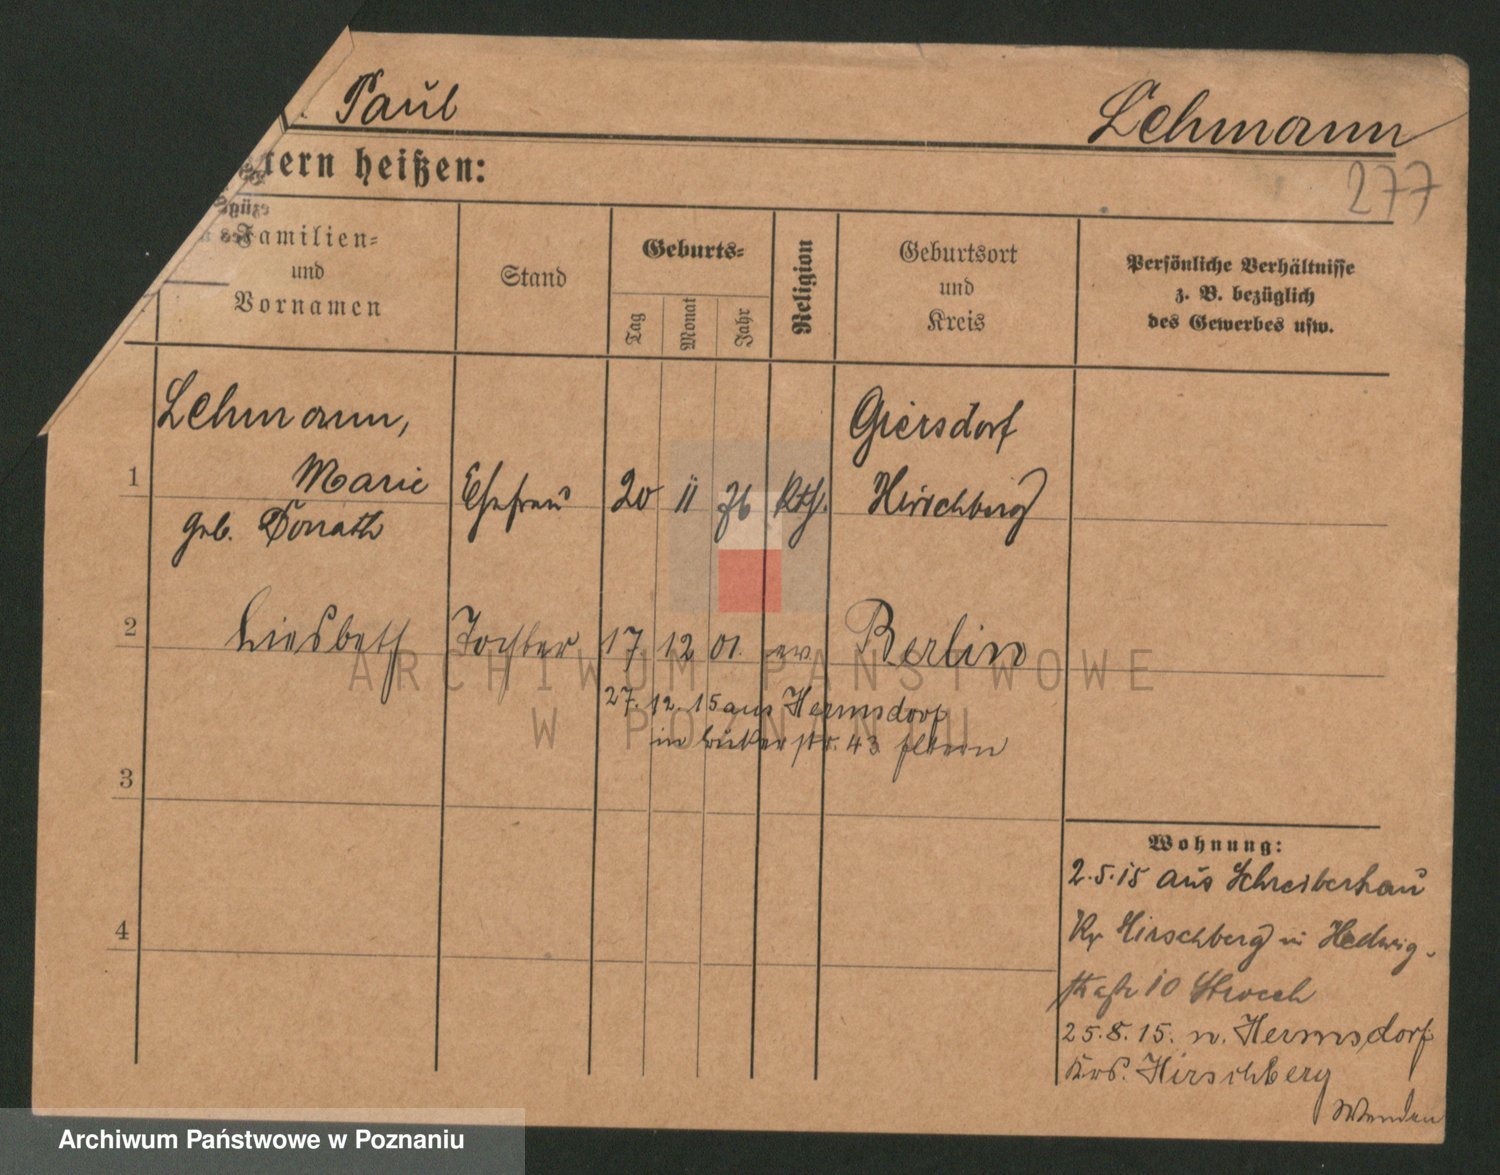 Paul Lehmann
tern heißen:
277
Familien=
und
Vornamen
Stand
Geburts=
Tag
Monat
Jahr
Religion
Geburtsort
und
Kreis
Persönliche Verhältnisse
z. B. bezüglich
des Gewerbes usw.
1
Lehmann,
Marie
geb. Donath
Ehefrau
20 11 76 kth.
Giersdorf
Hirschberg
2
Liesbeth Tochter 17 12 01. ev. Berlin
27. 12. 15 aus Hermsdorf
in str. 43 Eltern
3
4
Wohnung:
2.5.15 aus Schreiberhau
Kr Hirschberg in Hedwig-
straße 10
25.8.15. n. Hermsdorf
Krs. Hirschberg
Wenden
ARCHIWUM PAŃSTWOWE
W POZNANIU
Archiwum Państwowe w Poznaniu